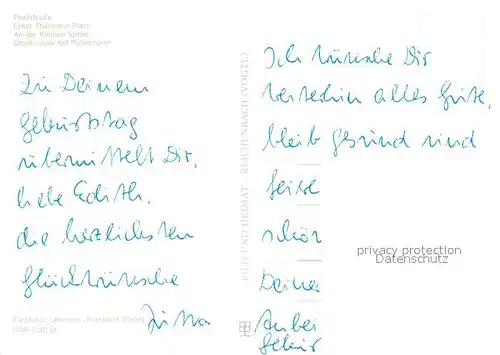 Poststraße
Ernst-Thälmann-Platz
An der Kleinen Spree
Stadtmauer mit Pulverturm
Zu Deinem
Geburtstag
übermittelt Dir,
liebe Edith,
die herzlichsten
Glückwünsche
Jutta
BILD UND HEIMAT REICHENBACH (VOGTL)
Ich wünsche Dir
weiterhin alles Gute,
bleib gesund und
feire
schön
Deine
Anbei
Gebur
privacy protection
Datenschutz